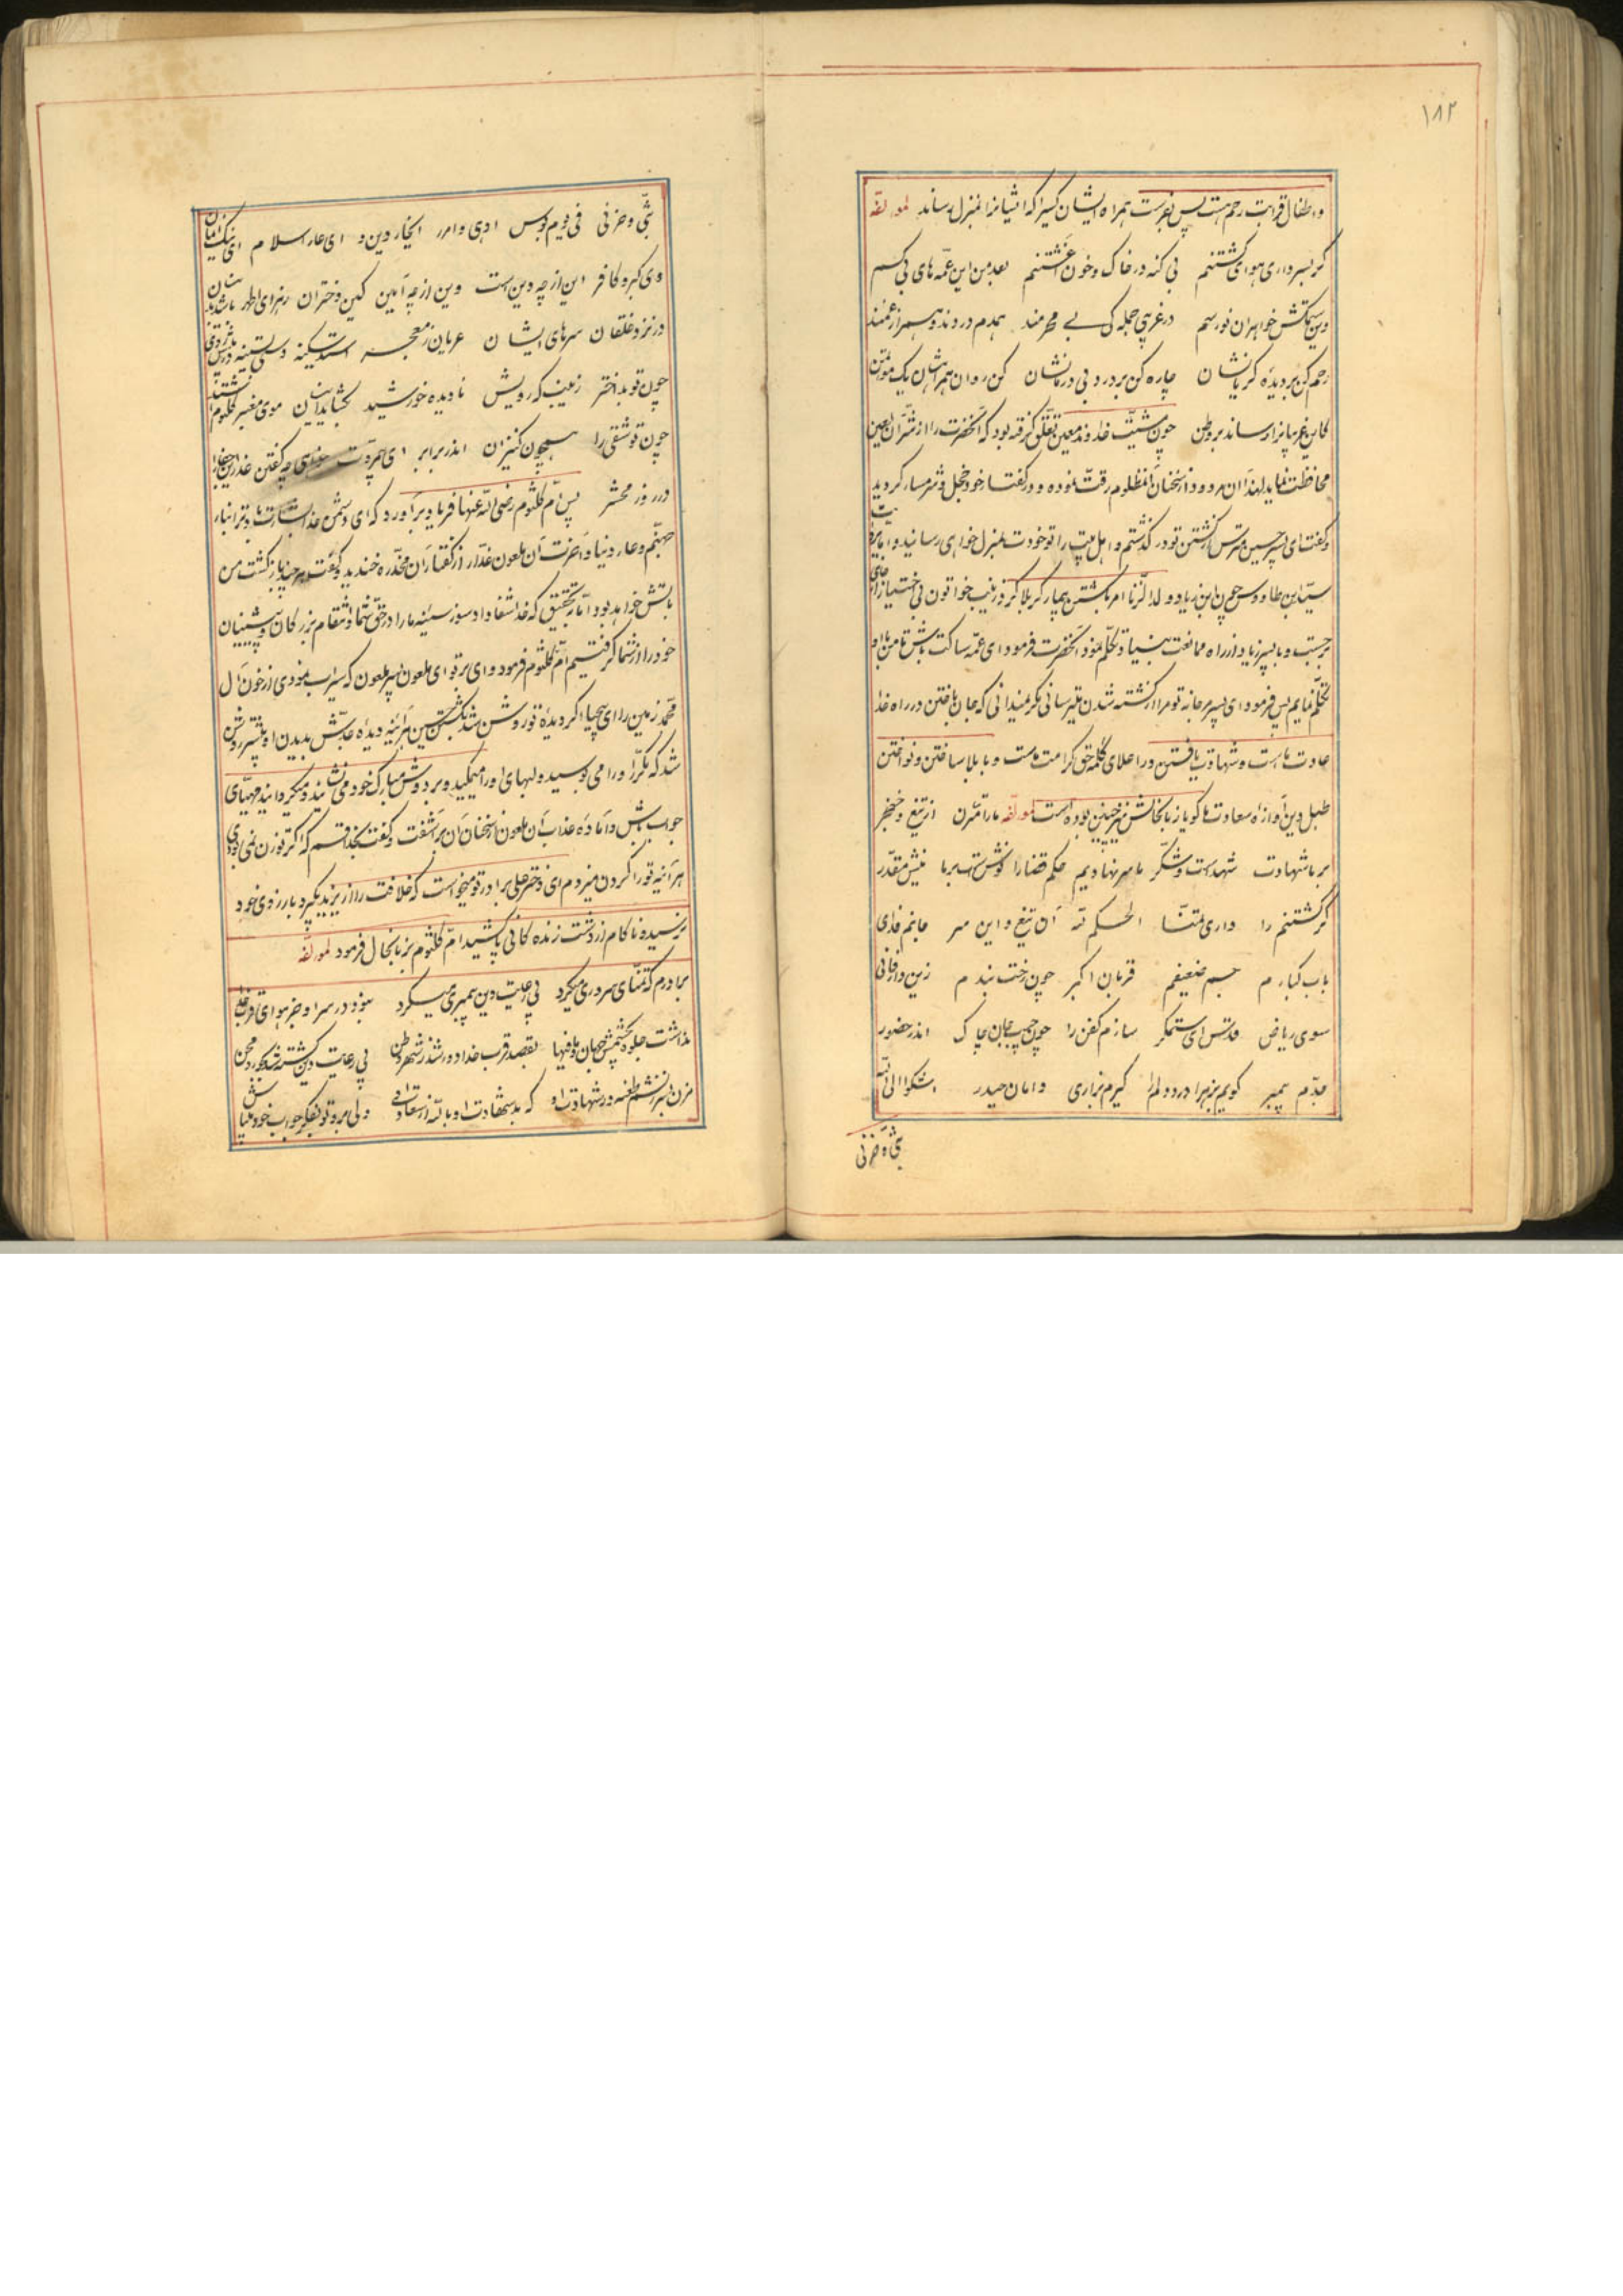 ۱۸۲
و اطفال قرابت رحم هست پس بفرست همراه ایشان کسیرا که ایشانرا بمنزل رساند لمولفه
گر بسر داری هوای کشتنم بی کنه در خاک و خون آغشتنم بعد من این عمه های بی کسم
وین ستمکش خواهران نورسم در غریبی جمله کی بی محرمند همدم دردند و همراز غمند
رحم کن بر دیده گریانشان چاره کن بر درد بی درمانشان کن روان همراهشان یک موتمن
کاین غریبانرا رساند بر وطن چون مشیت خداوند معین تعلق گرفته بود که آنحضرت را از شر آن لعین
محافظت نماید لهذا آن مردود از سخنان آنمظلوم رقت نموده و در گفتار خود خجل و شرمسار گردید
و گفت ای پسر حسین مترس از کشتن تو در گذشتم و اهل بیت را تو خودت بمنزل خواهی رسانید و
سید بن طاووس چون ابن زیاد ولد الزنا امر بکشتن بیمار کربلا کرد زینب خواتون بی اختیار از جای
برجست و با پسر زیاد از راه ممانعت تکلم نمود آنحضرت فرمود ای عمه ساکت باش تا من با او
تکلم نمایم پس فرمود ای پسر مرجانه تو مرا از کشته شدن میترسانی مگر نمیدانی که جان باختن در راه خدا
عادت ماست و شهادت یافتن در اعلای کلمه حق کرامت ماست و با بلا ساختن و نواختن
طبل دین آوازه سعادت ما گویا زبانحالش نیز چنین بوده است لمولفه ما را مترسان از تیغ و خنجر
بر ما شهادت شهد است و شکر ما سر نهادیم حکم قضا را نوشست بر ما نیش مقدر
گر کشتنم را داری تمنا الحکم لله آن تیغ و این سر جانم فدای
باب کبارم جسم ضعیفم قربان اکبر چون رخت بندم زین دار فانی
سوی ریاض قدس ای ستمگر سازم کفن را چون جیب جان چاک اندر حضور
جدم پیمبر گویم بزهرا درد دلم را گیرم بزاری دامان حیدر اشکوا الی الله
بثی و حزنی
بثی و حزنی فی یوم بوس ادهی و امرر ایخار دین و ای عار اسلام ای ننک ایمان
وی گبر و کافر این از چه دین است وین از چه آیین کین دختران زهرای اطهر
در نزد خلقان سرهای ایشان عریان ز معجر استد سکینه
چون تو بد اختر زینب که رویش نادیده خورشید بگشاید اینسان موی معنبر کلثوم
چون تو شقی را همچون کنیزان اندر برابر ای بیمروت خواهی چه گفتن
در روز محشر پس ام کلثوم رضی الله عنها فریاد برآورد که ای دشمن خدا بشارت باد ترا بنار
جهنم و عار دنیا و آخرت آن ملعون غدار از گفتار آن مخدره خندید و گفت هر چند بازگشت من
بآتش خواهد بود اما بتحقیق که خدا شفا داد سوز سینه ما را در حق شما و انتقام بزرگان و پیشینیان
خود را از شما گرفتیم ام کلثوم فرمود وای بر تو ای ملعون پسر ملعون که سیراب نمودی از خون آل
محمد زمین را ای بیحیا اگر دیده تو روشن شد بکشتن حسین هر آینه دیده جدش بدیدن او بیشتر روشن
شد که مکررا او را می بوسید و لبهای او را میمکید و بر دوش مبارک خود می نشانید و میگردانید مهیای
جواب باش و آماده عذاب آن ملعون از سخنان آن برآشفت و گفت بخدا قسم که اگر تو زن نمی بودی
هر آینه تو را گردن میزدم ای دختر علی برادر تو میخواست که خلافت را از یزید بگیرد بارزوی خود
نرسید و ناکام از دشت زنده کانی پا کشید ام کلثوم بزبانحال فرمود لمولفه
برادرم که تمنای سروری میکرد پی رعایت دین پیمبری میکرد نبود در سر او جز هوای قرب خدا
نداشت جلوه بچشمش جهان و مافیها بقصد قرب خدا دور شد ز شهر و وطن پی رعایت دین کشته شد
مزن بر آتشم طعنه در شهادت او که بد شهادت او بالله از سعادت او ولی برو تو بفکر جواب خود میباش